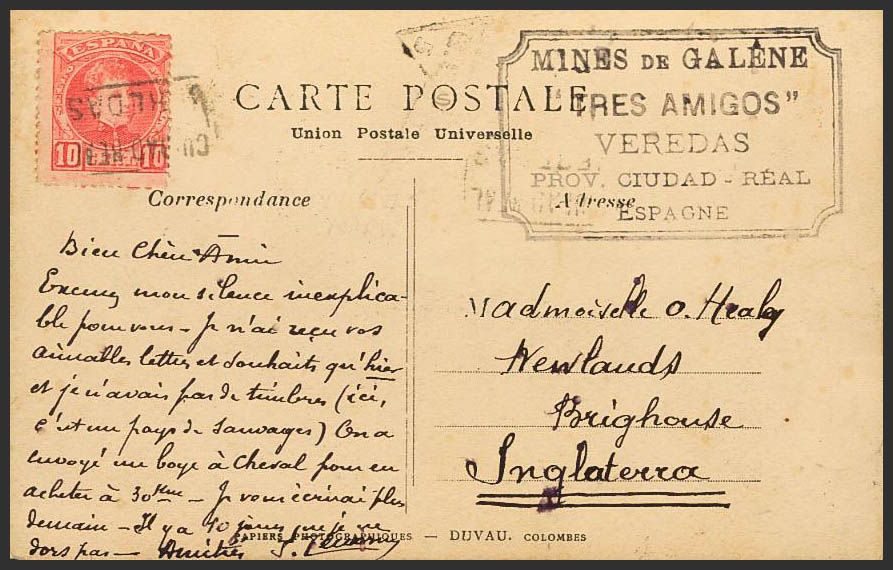 ESPAÑA
10 10
CARTE POSTALE
Union Postale Universelle
MINES DE GALÈNE
"TRES AMIGOS"
VEREDAS
PROV. CIUDAD-RÉAL
ESPAGNE
Correspondance
Adresse
Bien Chère Amie
Excusez mon silence inexplica-
ble pour vous – Je n'ai reçu vos
aimables lettres et souhaits qu'hier
et je n'avais pas de timbres (ici,
c'est un pays de sauvages) On a
envoyé un boye à cheval pour en
acheter à 30 Km – Je vous écrirai plus
demain – Il y a 10 jours que je ne
dors pas – Amitiés
Madmoiselle O. Healy
Newlands
Brighouse
Inglaterra
PAPIERS PHOTOGRAPHIQUES — DUVAU. COLOMBES